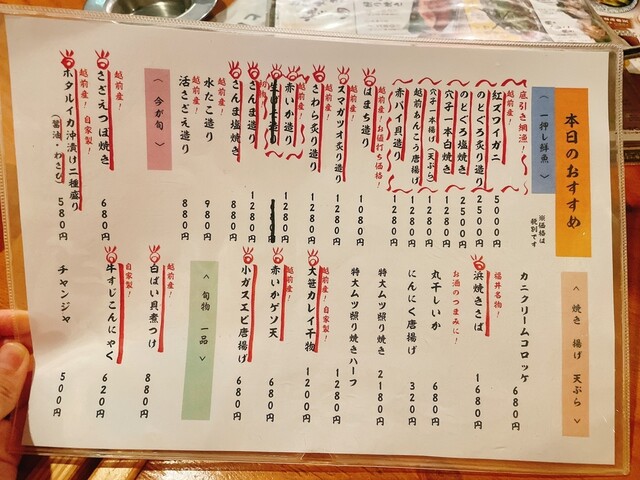 本日のおすすめ
※価格は
税別です
〈一押し鮮魚〉
底引き網漁!
越前産!
紅ズワイガニ 5000円
のどぐろ炙り造り 2500円
のどぐろ塩焼き 2500円
穴子一本白焼き 1280円
穴子一本揚げ(天ぷら) 1280円
越前あんこう唐揚げ 1280円
赤バイ貝造り 1280円
越前産!お値打ち価格!
はまち造り 1080円
越前産!
スマガツオ炙り造り 1280円
越前産!
さわら炙り造り 1280円
越前産!
赤いか造り 1280円
さんま造り 1280円
さんま塩焼き 880円
越前産!
水たこ造り 980円
越前産!
活さざえ造り 880円
〈今が旬〉
越前産!
さざえつぼ焼き 680円
越前産!自家製!
ホタルイカ沖漬け二種盛り
(醤油・わさび) 580円
〈焼き 揚げ 天ぷら〉
カニクリームコロッケ 680円
福井名物!
浜焼きさば 1680円
お酒のつまみに!
丸干しいか 680円
にんにく唐揚げ 320円
特大ムツ照り焼き 2180円
特大ムツ照り焼きハーフ 1280円
越前産!自家製!
大笹カレイ干物 1280円
越前産!
赤いかゲソ天 680円
小ガスエビ唐揚げ 680円
〈旬物 一品〉
越前産!
白ばい貝煮つけ 880円
自家製!
牛すじこんにゃく 620円
チャンジャ 500円